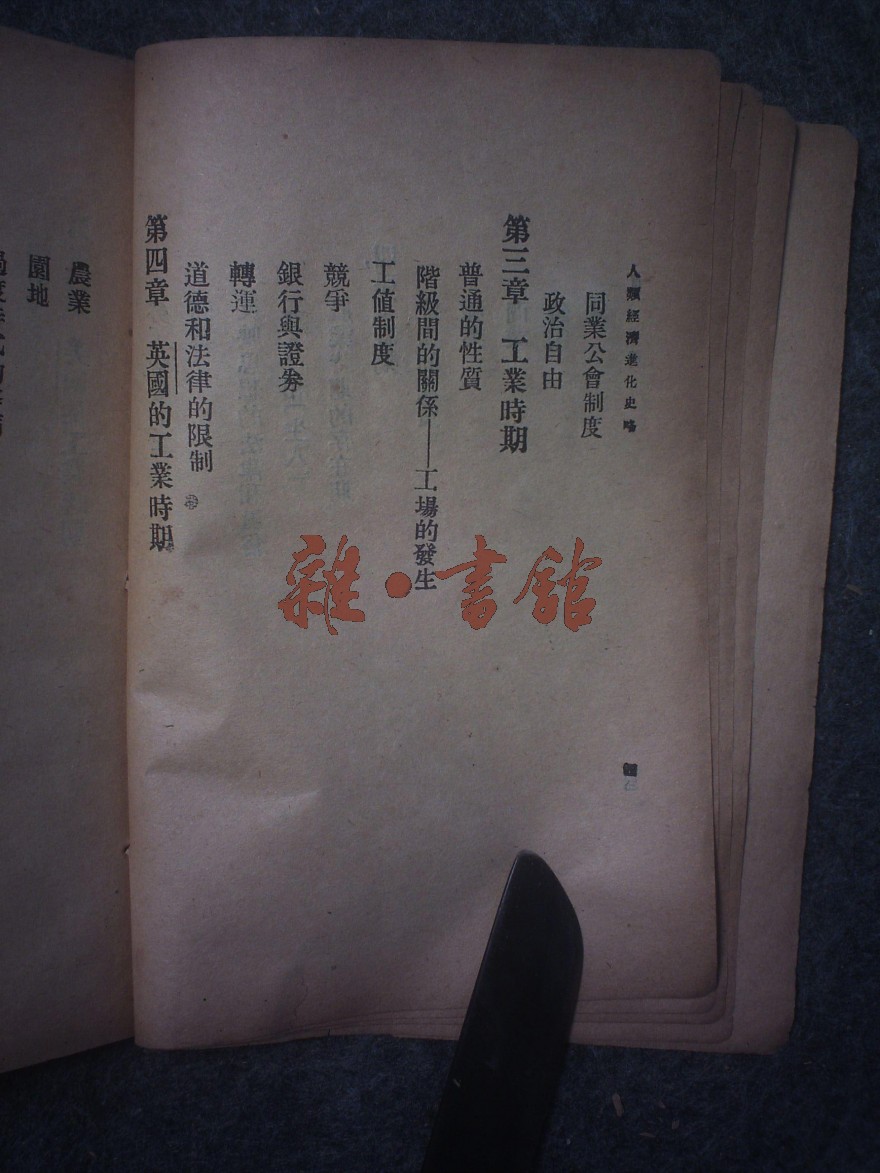 人類經濟進化史略
同業公會制度
政治自由
第三章　工業時期
普通的性質
階級間的關係——工場的發生
工值制度
競爭
銀行與證券
轉運
道德和法律的限制
第四章　英國的工業時期
農業
園地
雜·書館